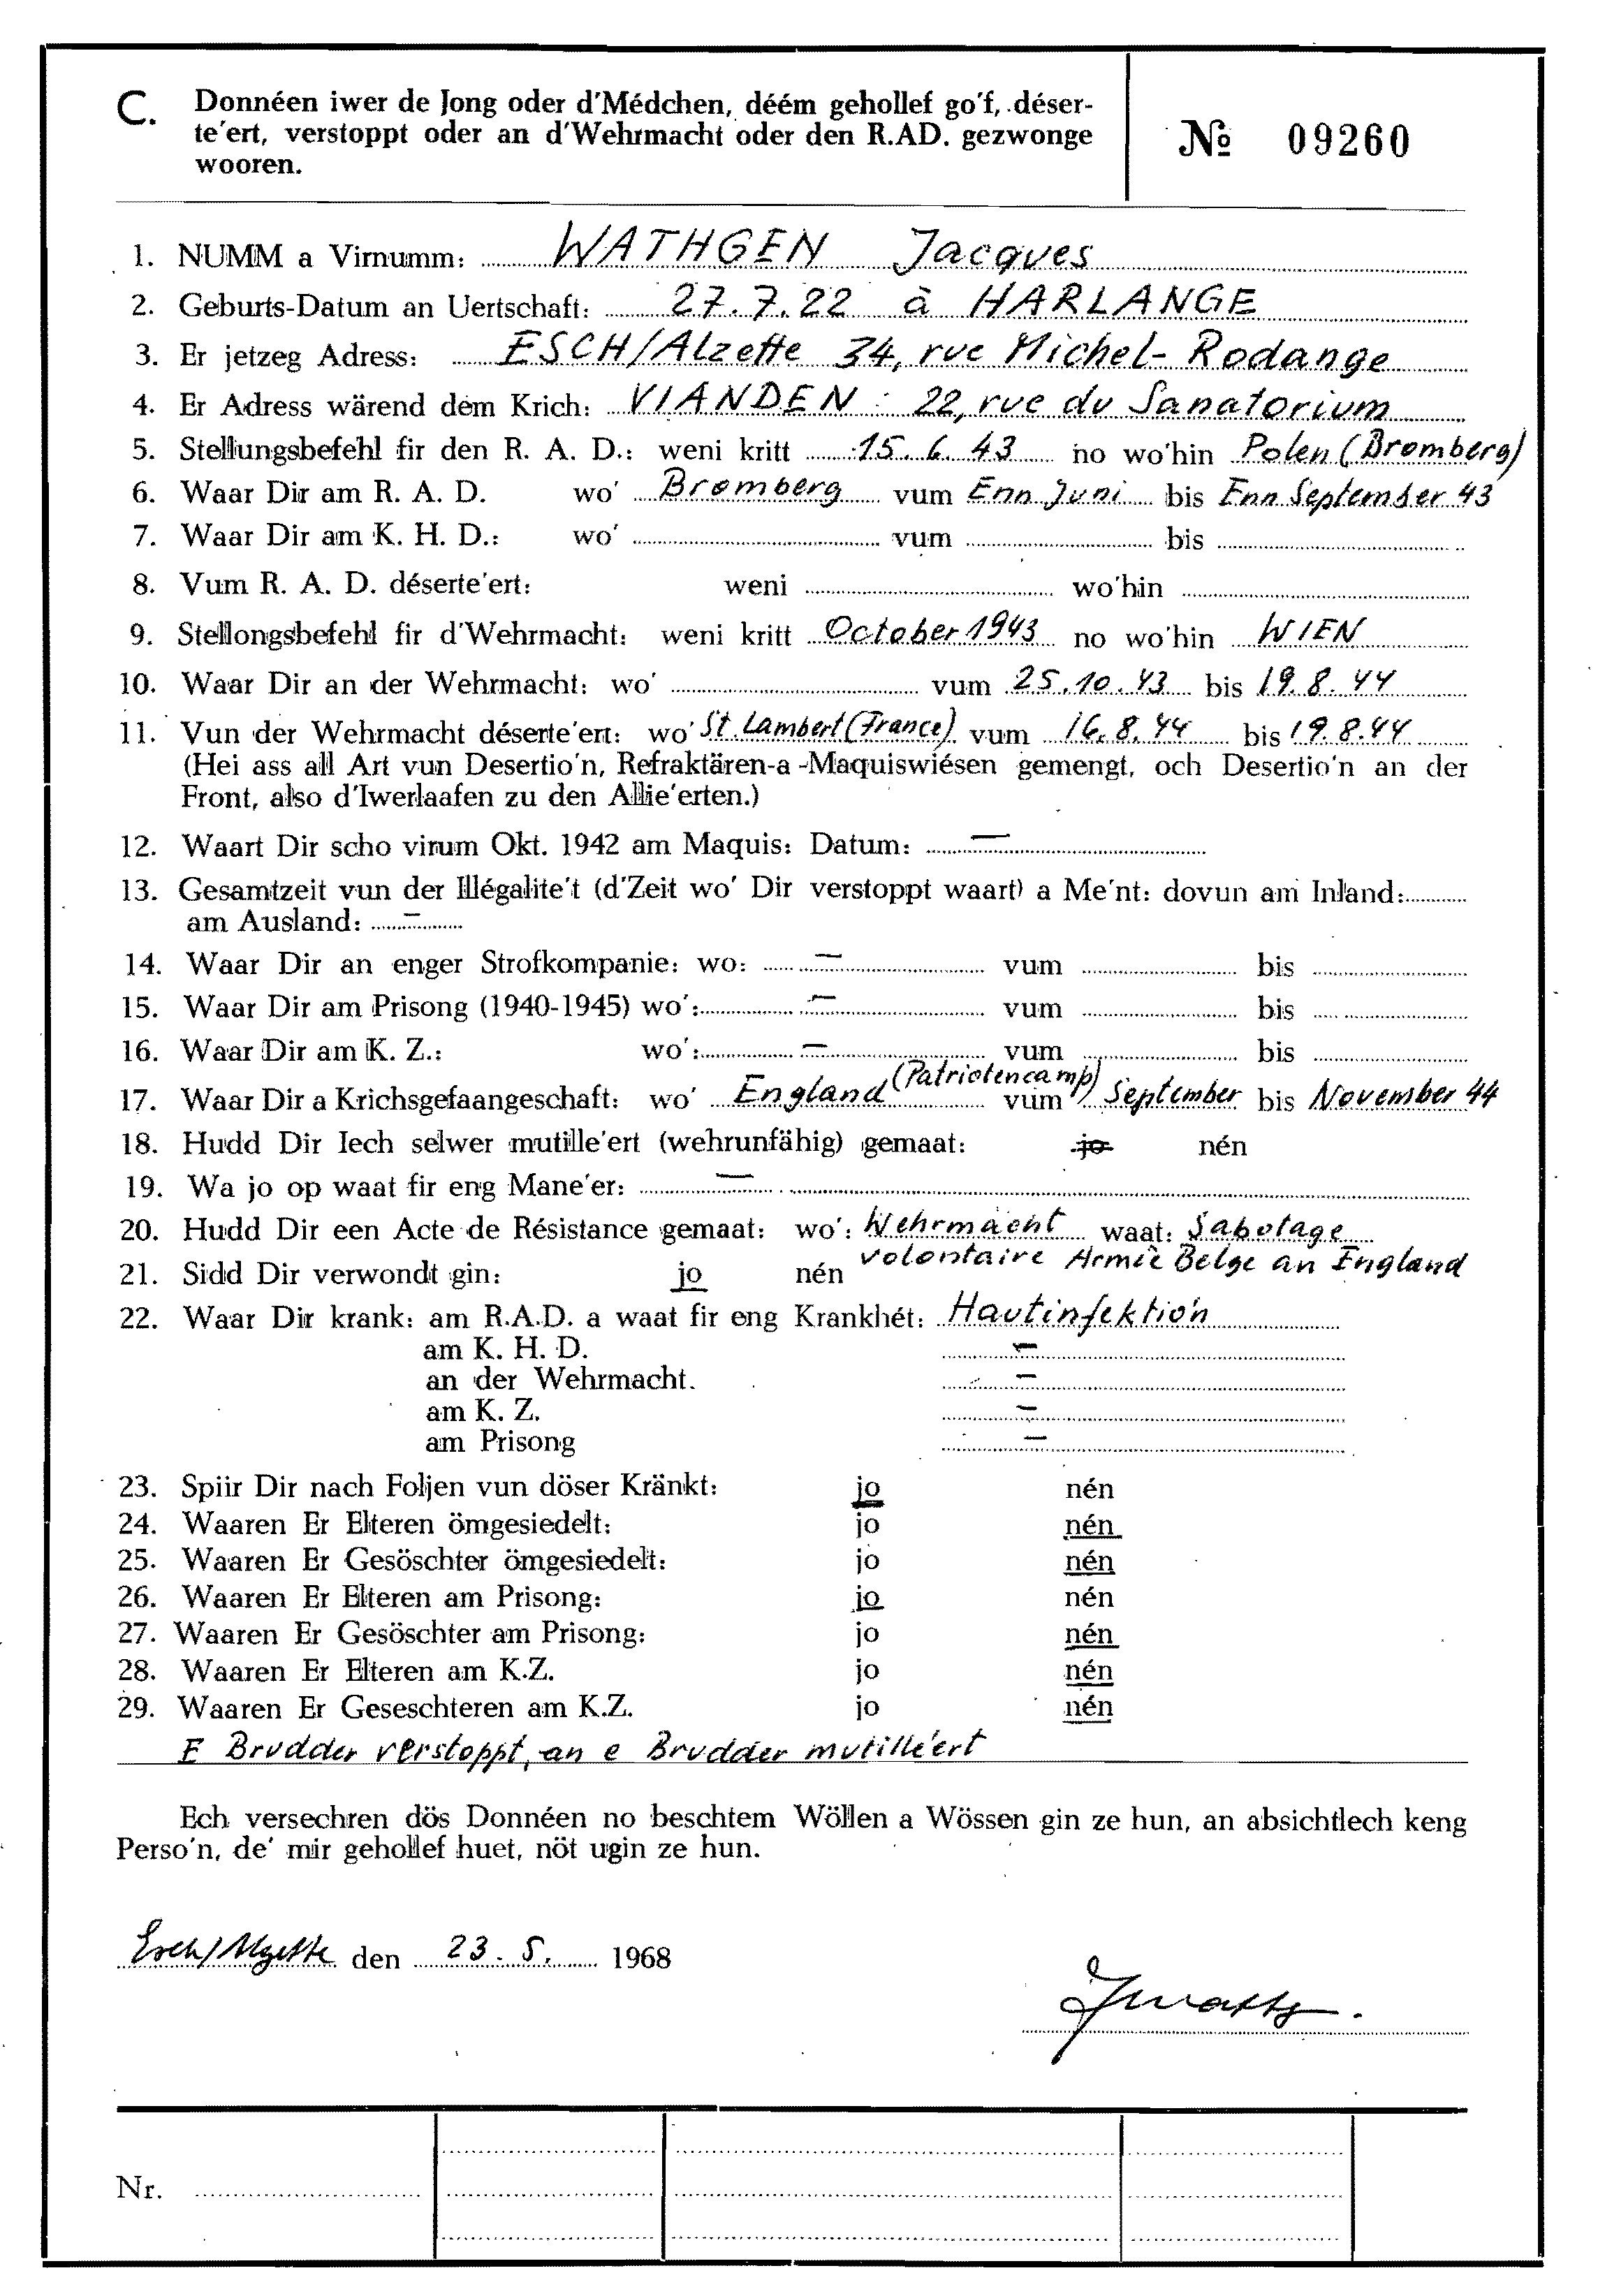 C. Donnéen iwer de Jong oder d'Médchen, déém gehollef go'f, déser-
te'ert, verstoppt oder an d'Wehrmacht oder den R.AD. gezwonge
wooren.
№ 09260
1. NUMM a Virnumm: WATHGEN Jacques
2. Geburts-Datum an Uertschaft: 27.7.22 à HARLANGE
3. Er jetzeg Adress: ESCH/Alzette 34, rue Michel-Rodange
4. Er Adress wärend dem Krich: VIANDEN : 22, rue du Sanatorium
5. Stellungsbefehl fir den R. A. D.: weni kritt 15. 6. 43 no wo'hin Polen (Bromberg)
6. Waar Dir am R. A. D. wo' Bromberg vum Enn Juni bis Enn September 43
7. Waar Dir am K. H. D.: wo' vum bis
8. Vum R. A. D. déserte'ert: weni wo'hin
9. Stellongsbefehl fir d'Wehrmacht: weni kritt October 1943 no wo'hin WIEN
10. Waar Dir an der Wehrmacht: wo' vum 25.10.43 bis 19.8.44
11. Vun der Wehrmacht déserte'ert: wo' St. Lambert (France) vum 16.8.44 bis 19.8.44
(Hei ass all Art vun Desertio'n, Refraktären-a-Maquiswiésen gemengt, och Desertio'n an der
Front, also d'Iwerlaafen zu den Allie'erten.)
12. Waart Dir scho virum Okt. 1942 am Maquis: Datum: —
13. Gesamtzeit vun der Illégalite't (d'Zeit wo' Dir verstoppt waart) a Me'nt: dovun am Inland:
am Ausland: —
14. Waar Dir an enger Strofkompanie: wo: — vum bis
15. Waar Dir am Prisong (1940-1945) wo': — vum bis
16. Waar Dir am K. Z.: wo': — vum bis
17. Waar Dir a Krichsgefaangeschaft: wo' England (Patriotencamp) vum September bis November 44
18. Hudd Dir Iech selwer mutille'ert (wehrunfähig) gemaat: jo nén
19. Wa jo op waat fir eng Mane'er: —
20. Hudd Dir een Acte de Résistance gemaat: wo': Wehrmacht waat: Sabotage
volontaire Armée Belge an England
21. Sidd Dir verwondt gin: jo nén
22. Waar Dir krank: am R.A.D. a waat fir eng Krankhét: Hautinfektio'n
am K. H. D. —
an der Wehrmacht. —
am K. Z. —
am Prisong —
23. Spiir Dir nach Foljen vun döser Kränkt: jo nén
24. Waaren Er Elteren ömgesiedelt: jo nén
25. Waaren Er Gesöschter ömgesiedelt: jo nén
26. Waaren Er Elteren am Prisong: jo nén
27. Waaren Er Gesöschter am Prisong: jo nén
28. Waaren Er Elteren am K.Z. jo nén
29. Waaren Er Geseschteren am K.Z. jo nén
E Brudder verstoppt, an e Brudder mutille'ert
Ech versechren dös Donnéen no beschtem Wöllen a Wössen gin ze hun, an absichtlech keng
Perso'n, de' mir gehollef huet, nöt ugin ze hun.
Esch/Alzette den 23. 5. 1968
Nr.